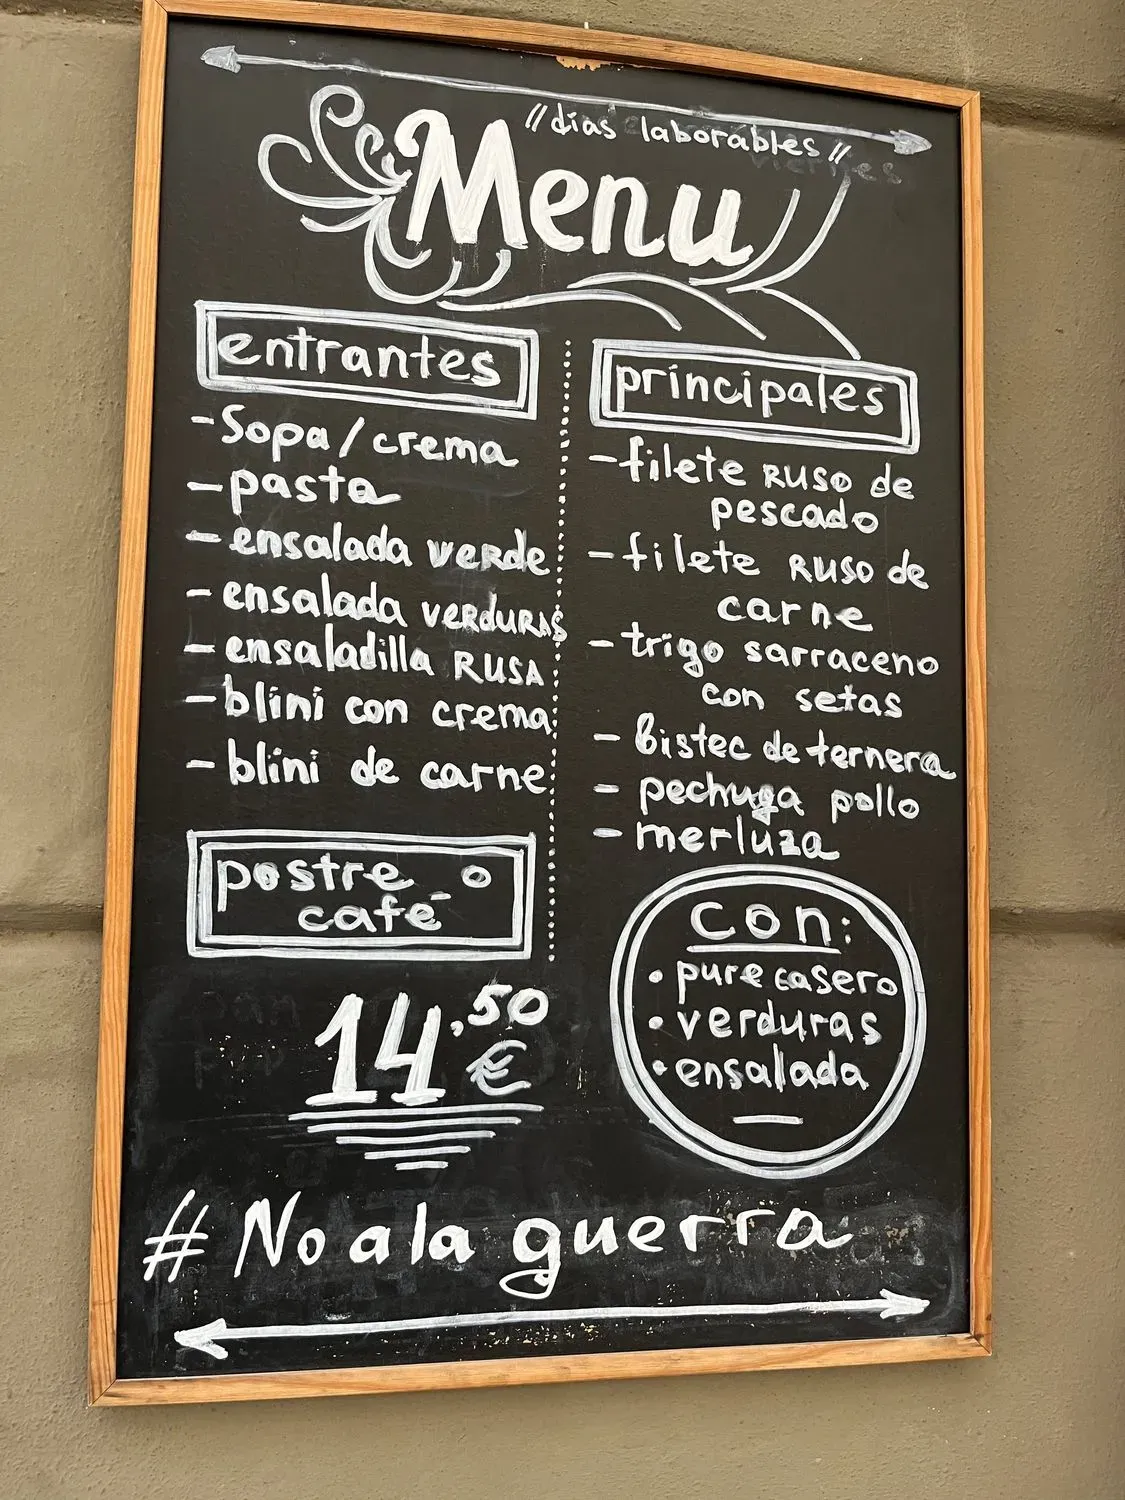 "días laborables"
Menu
entrantes
- Sopa/crema
- pasta
- ensalada verde
- ensalada verduras
- ensaladilla RUSA
- blini con crema
- blini de carne
postre o
café
14,50
€
principales
- filete RUSO de
pescado
- filete RUSO de
carne
- trigo sarraceno
con setas
- bistec de ternera
- pechuga pollo
- merluza
con:
• pure casero
• verduras
• ensalada
# No a la guerra